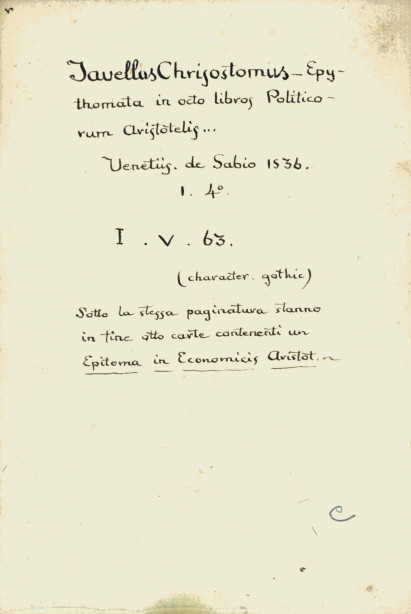 Javellus Chrisostomus – Epy-
thomata in octo libros Politico-
rum Aristotelis...
Venetiis. de Sabio 1536.
1. 4º.
I. V. 63.
(character. gothic)
Sotto la stessa paginatura stanno
in fine otto carte contenenti un
Epitoma in Economicis Aristot.
C